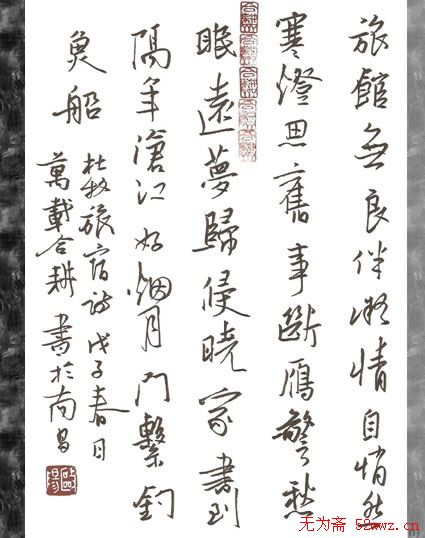 旅館無良伴凝情自悄然
寒燈思舊事斷雁警愁
眠遠夢歸侵曉家書到
隔年滄江好烟月門繫釣
魚船
杜牧旅宿詩戊子春日
萬載合耕書於南昌
无为斋 52wwz.cn